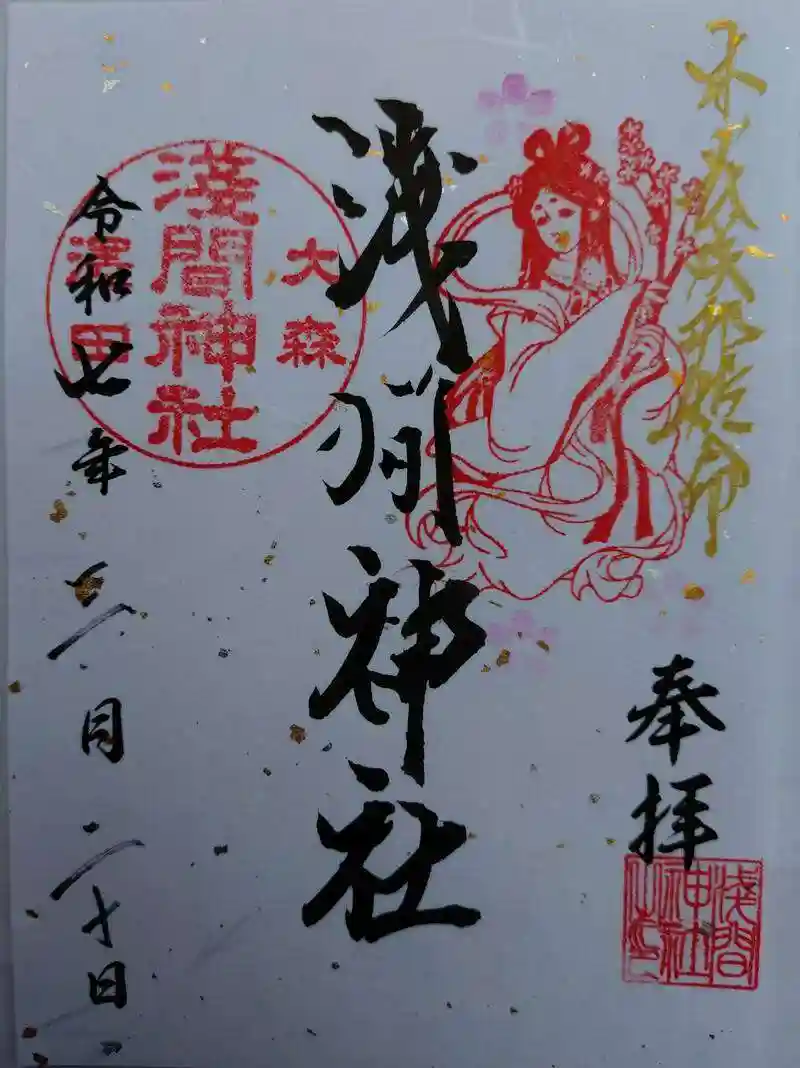 木花咲耶姫命
奉拝
淺間神社之印
浅間神社
大森
淺間神社
澤田
令和七年三月二十日